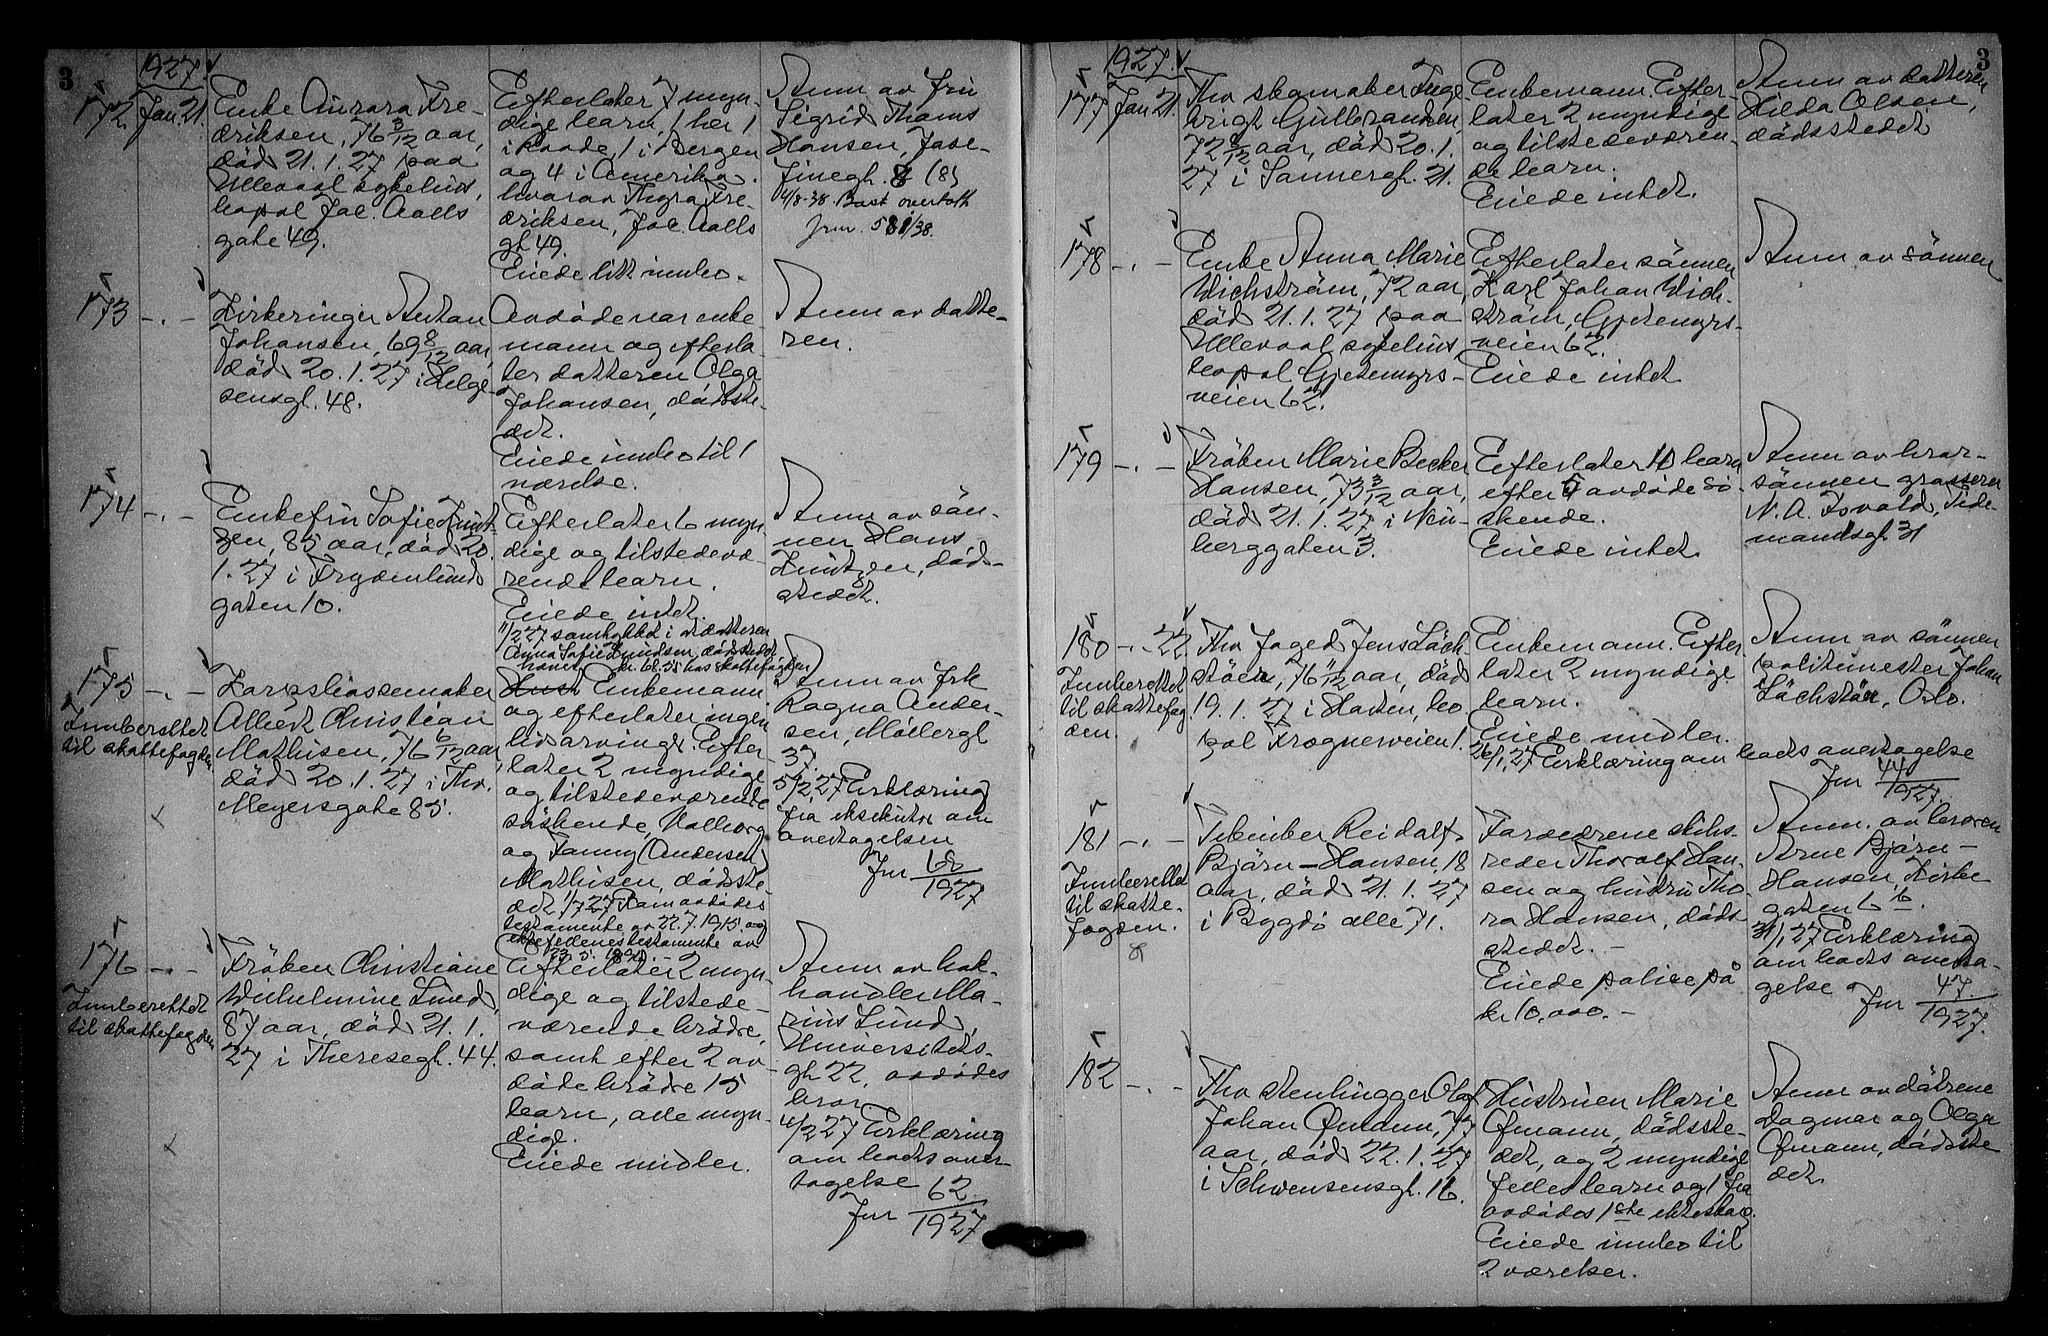 3
1927.
172
Jan. 21.
Enke Aurora Fre-
driksen, 76 3/12 aar,
död 21.1.27 paa
Ullevaal sykehus,
bopæl Jac. Aalls
gate 49.
Efterlater 7 myn-
dige barn, 1 her 1
i Raade, 1 i Bergen
og 4 i Amerika.
hvorav Thyra Fre-
driksen, Jac. Aalls
gt. 49.
Eiede litt innbo.
Anm av fru
Sigrid Thoms
Hansen, Jose-
finegt. 8 (8)
4/8-38. Bost overtatt
Jrn. 581/38.
173
-.-
Kirkeringer Anton
Johansen, 69 8/12 aar,
död 20.1.27 i Helge-
sensgt. 48.
Avdöde var enke-
mann og efterla-
ter datteren Olga
Johansen, dödste-
det.
Eiede innbo til 1
værelse.
Anm av datte-
ren.
174
-.-
Enkefru Sofie Knut-
zen, 85 aar, död 20.
1.27 i Frydenlunds
gaten 10.
Efterlater 6 myn
dige og tilstedevæ
rende barn.
Eiede intet.
11/2 27 samtykket i at datteren
Anna Sofie Knudsen, dödstedet
hæver kr. 68.55 hos skattefogden
Anm av sön-
nen Hans
Knutzen, död-
stedet.
175
-.-
Innberettet
til skattefogden
Korpsbössemaker
Albert Christian
Mathisen, 76 6/12 aar,
död 20.1.27 i Thv.
Meyersgate 85.
Enkemann
og efterlater ingen
livsarvinger. Efter
later 2 myndige
og tilstedeværende
söskende, Valborg
og Fanny (Andersen)
Mathisen, dödste-
det 1/7 27 Fram avdödes
testamente av 22.7.1915 og
ektefellenes testamente av
23.5.1891.
Anm av frk
Ragna Ander-
sen, Möllergt
37.
5/2 27 Erklæring
fra eksekutor om
overtagelsen
Jnr 68/1927
176
-.-
Innberettet
til skattefogden
Fröken Christiane
Wilhelmine Lund,
87 aar, död 21.1.
27 i Theresegt. 44.
Efterlater 2 myn-
dige og tilstede-
værende brödre,
samt efter 2 av-
döde brödre 15
barn, alle myn-
dige.
Eiede midler.
Anm av bok-
handler Ma-
rius Lund,
Universitets-
gt 22, avdödes
bror
4/2 27 Erklæring
om boets over-
tagelse
Jnr 62/1927
3
1927.
177
Jan 21.
Fhv skomaker Inge-
brigt Gulbrandsen,
72 8/12 aar, död 20.1.
27 i Sannergt. 21.
Enkemann. Efter-
later 2 myndige
og tilstedeværen-
de barn.
Eiede intet.
Anm av datteren
Hilda Olsen,
dödsstedet
178
-.-
Enke Anna Marie
Wichström, 72 aar,
död 21.1.27 paa
Ullevaal sykehus
bopæl Gjetemyrs-
veien 62.
Efterlater sönnen
Karl Johan Wich-
ström, Gjetemyrs-
veien 62.
Eiede intet
Anm av sönnen
179
-.-
Fröken Marie Becker
Hansen, 73 3/12 aar,
död 21.1.27 i Neu-
berggaten 3.
Efterlater 11 barn
efter 5 avdöde sö-
skende.
Eiede intet
Anm av bror-
sönnen grosserer
N. A. Isvald, Tide-
mandsgt 31
180
-.- 22
Innberettet
til skattefog
den.
Fhv foged Jens Löch-
stöer, 76 11/12 aar, död
19.1.27 i Horten, bo
pæl Frognerveien 1.
Enkemann. Efter-
later 2 myndige
barn.
Eiede midler.
26/1 27 Erklæring om boets overtagelse
Jnr 44/1927.
Anm av sönnen
politimester Johan
Löchstöer, Oslo.
181
-.-
Innberettet
til skatte-
fogden.
Tekniker Reidolf
Björn-Hansen, 18
aar, död 21.1.27
i Bygdö alle 71.
Foreldrene skibs-
reder Thoralf Han-
sen og hustru Tho
ra Hansen, döds
stedet.-
Eiede police på
kr 10,000.-
Anm. av broren
Arne Björn-
Hansen, Kirke
gaten 6 b.
31/1 27 Erklæring
om boets overta-
gelse
Jnr 47/1927.
182
-.-
Fhv stenhugger Olaf
Johan Ømann, 77
aar, död 22.1.27
i Schwensensgt. 16.
Hustruen Marie
Ømann, dödsste-
det, og 2 myndige
felles barn og 1 fra
avdödes 1ste ekteskap.
Eiede innbo til
2 værelser.
Anm av dötrene
Dagmar og Olga
Ømann, dödsste
det